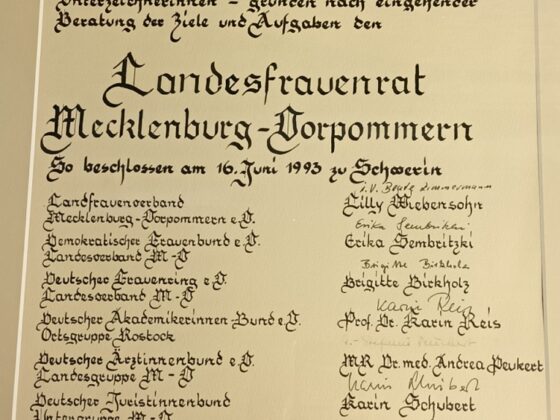 Unterzeichnerinnen – gründen nach eingehender
Beratung der Ziele und Aufgaben den
Landesfrauenrat
Mecklenburg-Vorpommern
So beschlossen am 16. Juni 1993 zu Schwerin
i.V. Beate Zimmermann
Landfrauenverband
Mecklenburg-Vorpommern e.V.
Lilly Wiebensohn
Erika Sembritzki
Demokratischer Frauenbund e.V.
Landesverband M-V
Erika Sembritzki
Brigitte Birkholz
Deutscher Frauenring e.V.
Landesverband M-V
Brigitte Birkholz
Karin Reis
Deutscher Akademikerinnen Bund e.V.
Ortsgruppe Rostock
Prof. Dr. Karin Reis
Deutscher Ärztinnenbund e.V.
Landesgruppe M-V
MR Dr. med. Andrea Peukert
Karin Schubert
Deutscher Juristinnenbund
Untergruppe M-V
Karin Schubert